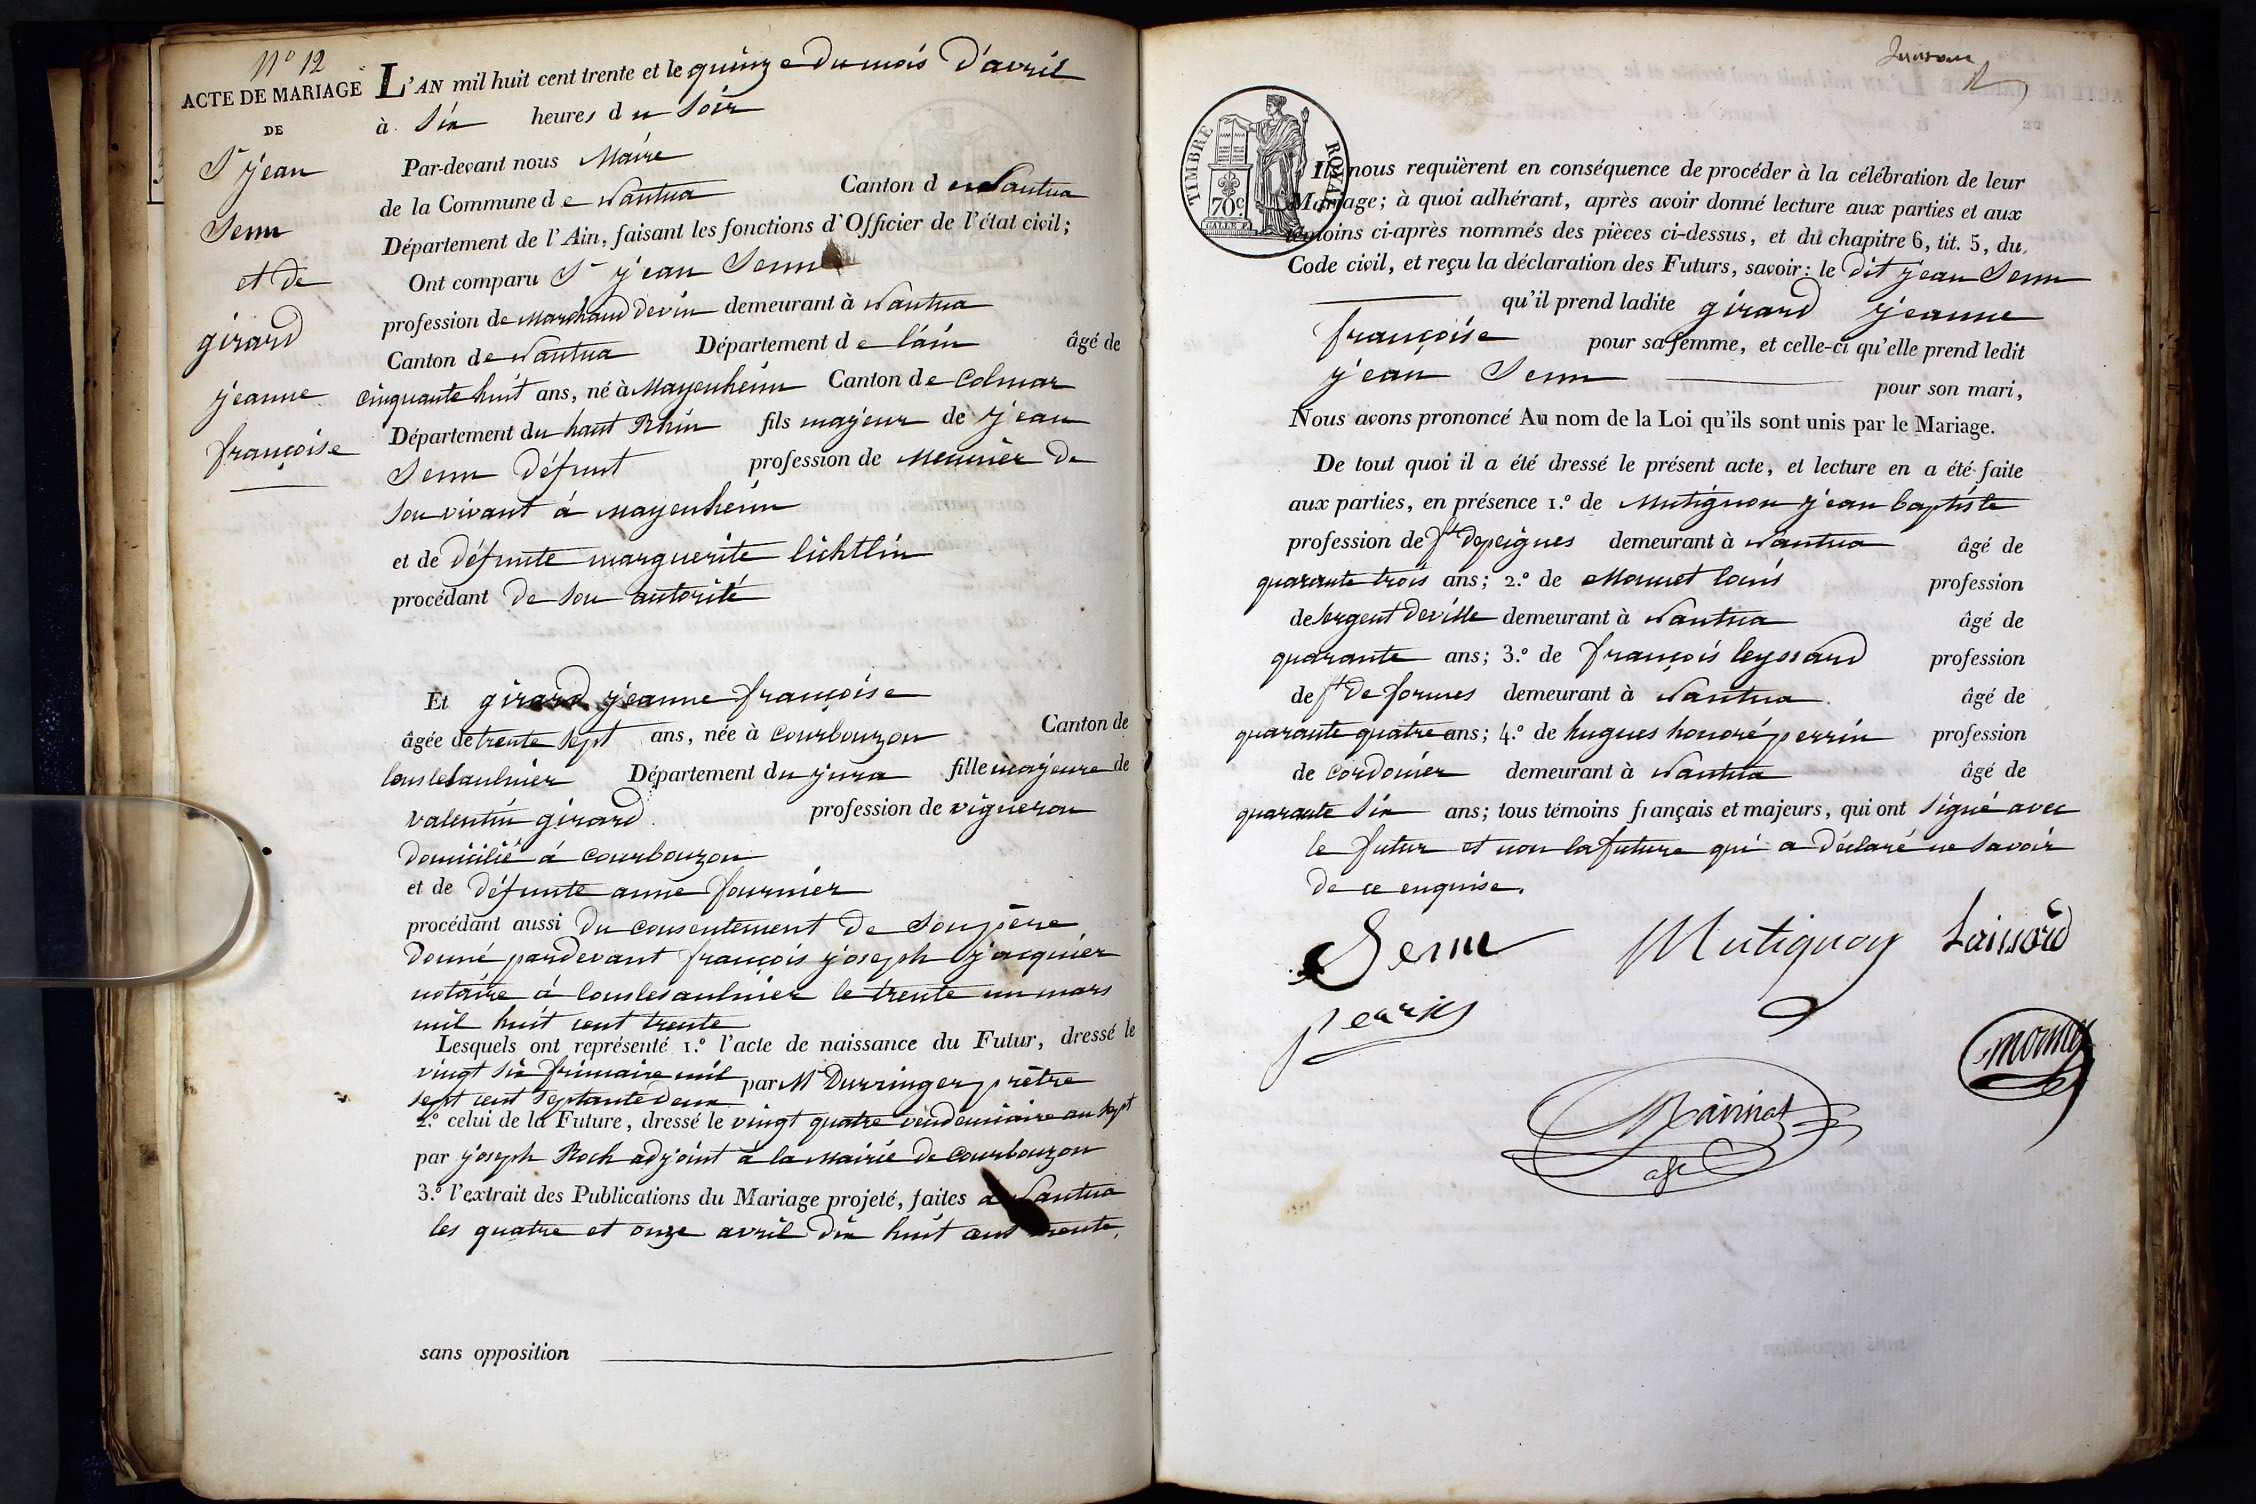 N° 12
ACTE DE MARIAGE
DE
Sr jean
Senn
et de
girard
jeanne
françoise
L'AN mil huit cent trente et le quinze du mois d'avril
à Six heures du Soir
Par-devant nous Maire
de la Commune de Nantua Canton de Nantua
Département de l'Ain, faisant les fonctions d'Officier de l'état civil;
Ont comparu Sr jean Senn
profession de Marchand devin demeurant à Nantua
Canton de Nantua Département de l'ain âgé de
cinquante huit ans, né à Mayenheim Canton de Colmar
Département du haut Rhin fils majeur de jean
Senn défunt profession de Meunier de
Son vivant à mayenheim
et de défunte marguerite lichtlin
procédant de Son autorité
Et girard jeanne françoise
âgée de trente Sept ans, née à Courbouzon Canton de
lonsleSaulnier Département du jura fille majeure de
valentin girard profession de vigneron
domicilié à Courbouzon
et de défunte anne fournier
procédant aussi du consentement de Son père
donné pardevant françois joseph jacquier
notaire à lonslesaulnier le trente un mars
mil huit cent trente
Lesquels ont représenté 1.° l'acte de naissance du Futur, dressé le
vingt Six frimaire mil
sept cent Septante deux par Mr Durringer prêtre
2.° celui de la Future, dressé le vingt quatre vendemiaire an Sept
par joseph Roch adjoint à la Mairie de Courbouzon
3.° l'extrait des Publications du Mariage projeté, faites à Nantua
les quatre et onze avril dix huit cent trente.
sans opposition
TIMBRE ROYAL
70c
Ils nous requièrent en conséquence de procéder à la célébration de leur
Mariage; à quoi adhérant, après avoir donné lecture aux parties et aux
témoins ci-après nommés des pièces ci-dessus, et du chapitre 6, tit. 5, du
Code civil, et reçu la déclaration des Futurs, savoir: le dit jean Senn
qu'il prend ladite girard jeanne
françoise pour sa femme, et celle-ci qu'elle prend ledit
jean Senn pour son mari,
Nous avons prononcé Au nom de la Loi qu'ils sont unis par le Mariage.
De tout quoi il a été dressé le présent acte, et lecture en a été faite
aux parties, en présence 1.° de Mutignon jean baptiste
profession de ft depeignes demeurant à Nantua âgé de
quarante trois ans; 2.° de Mornet louis profession
de Sergent deville demeurant à Nantua âgé de
quarante ans; 3.° de françois leyssard profession
de ft de formes demeurant à Nantua âgé de
quarante quatre ans; 4.° de hugues honoré perrin profession
de Cordonier demeurant à Nantua âgé de
quarante Six ans; tous témoins français et majeurs, qui ont Signé avec
le futur et non la future qui a déclaré ne Savoir
de ce enquise.
Senn Mutignon Laissard
perrin
Mornet